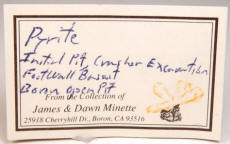 Pyrite
Initial Pit, Crusher Excavation
Footwall Basalt
Boron Open Pit
From the Collection of
James & Dawn Minette
25918 Cherryhill Dr., Boron, CA 93516